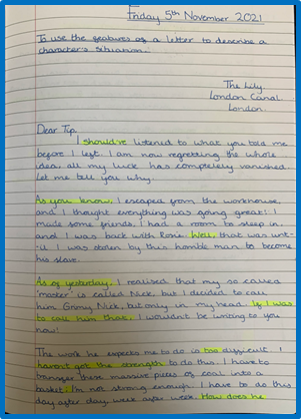 Friday 5th November 2021
To use the features of a letter to describe a
character's situation.
The Lily
London Canal
London
Dear Tip,
I should've listened to what you told me
before I left. I am now regretting this whole
idea. all my luck has completely vanished.
Let me tell you why.
As you know, I escaped from the workhouse,
and I thought everything was going great! I
made some friends, I had a room to sleep in
and I was back with Rosie. Well, that was unt-
il I was stolen by this horrible man to become
his slave.
As of yesterday, I realised that my so called
'master' is called Nick, but I decided to call
him Grimy Nick, but only in my head. If I was
to call him that, I wouldn't be writing to you
now!
The work he expects me to do is too difficult. I
haven't got the strength to do this. I have to
transfer these massive pieces of coal into a
basket. I'm not strong enough. I have to do this
day after day, week after week. How does he